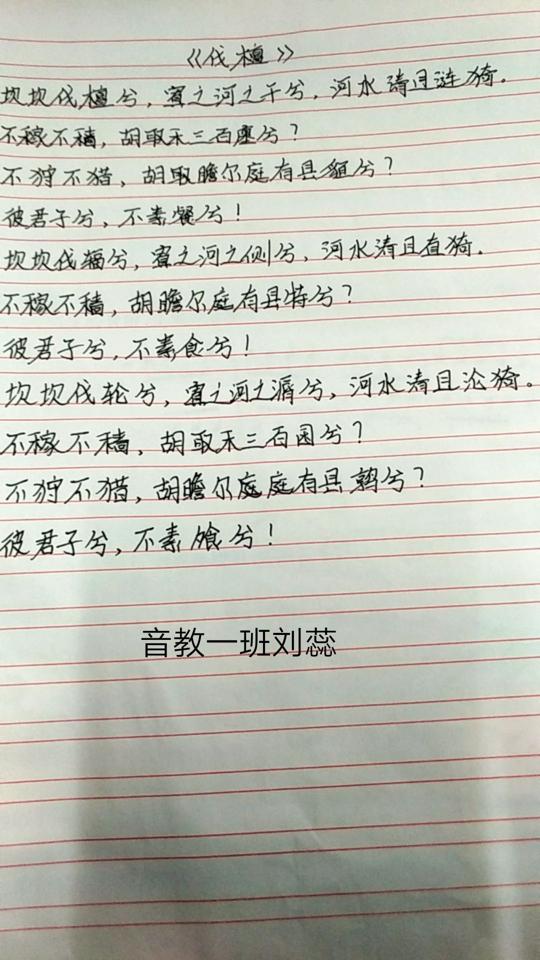 《伐檀》
坎坎伐檀兮，寘之河之干兮，河水清且涟猗。
不稼不穑，胡取禾三百廛兮？
不狩不猎，胡取瞻尔庭有县貆兮？
彼君子兮，不素餐兮！
坎坎伐辐兮，寘之河之侧兮，河水清且直猗.
不稼不穑，胡瞻尔庭有县特兮？
彼君子兮，不素食兮！
坎坎伐轮兮，寘之河之漘兮，河水清且沦猗。
不稼不穑，胡取禾三百囷兮？
不狩不猎，胡瞻尔庭庭有县鹑兮？
彼君子兮，不素飧兮！
音教一班刘蕊